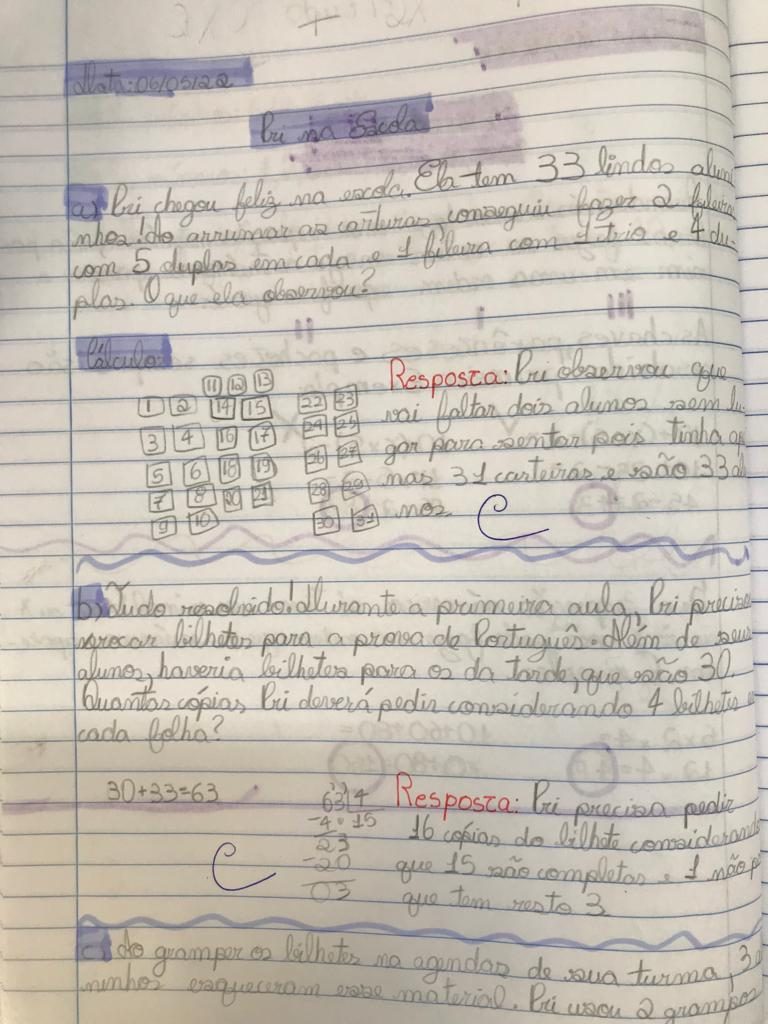 Data: 06/05/22
Pri na Escola
a) Pri chegou feliz na escola. Ela tem 33 lindos aluni
nhos! Ao arrumar as carteiras, conseguiu fazer 2 fileiras
com 5 duplas em cada e 1 fileira com 1 trio e 4 du-
plas. O que ela observou?
Cálculo:
11 12 13
1 2 14 15 22 23
3 4 16 17 24 25
5 6 18 19 26 27
7 8 20 21 28 29
9 10 30 31
Resposta: Pri observou que
vai faltar dois alunos sem lu
gar para sentar pois tinha ap
nas 31 carteiras e são 33 al
nos
C
b) Tudo resolvido! Durante a primeira aula, Pri precisa
bilhetes para a prova de Português. Além de seus
alunos, haveria bilhetes para os da tarde, que são 30.
Quantas cópias Pri deverá pedir considerando 4 bilhetes e
cada folha?
30+33=63
63 4
-4 15
23
-20
03
Resposta: Pri precisa pedir
16 cópias do bilhete considerand
que 15 são completas e 1 não p
que tem resto 3
C
c) Ao grampear os bilhetes na agendas de sua turma, 3 a
ninhos esqueceram esse material. Pri usou 2 grampos